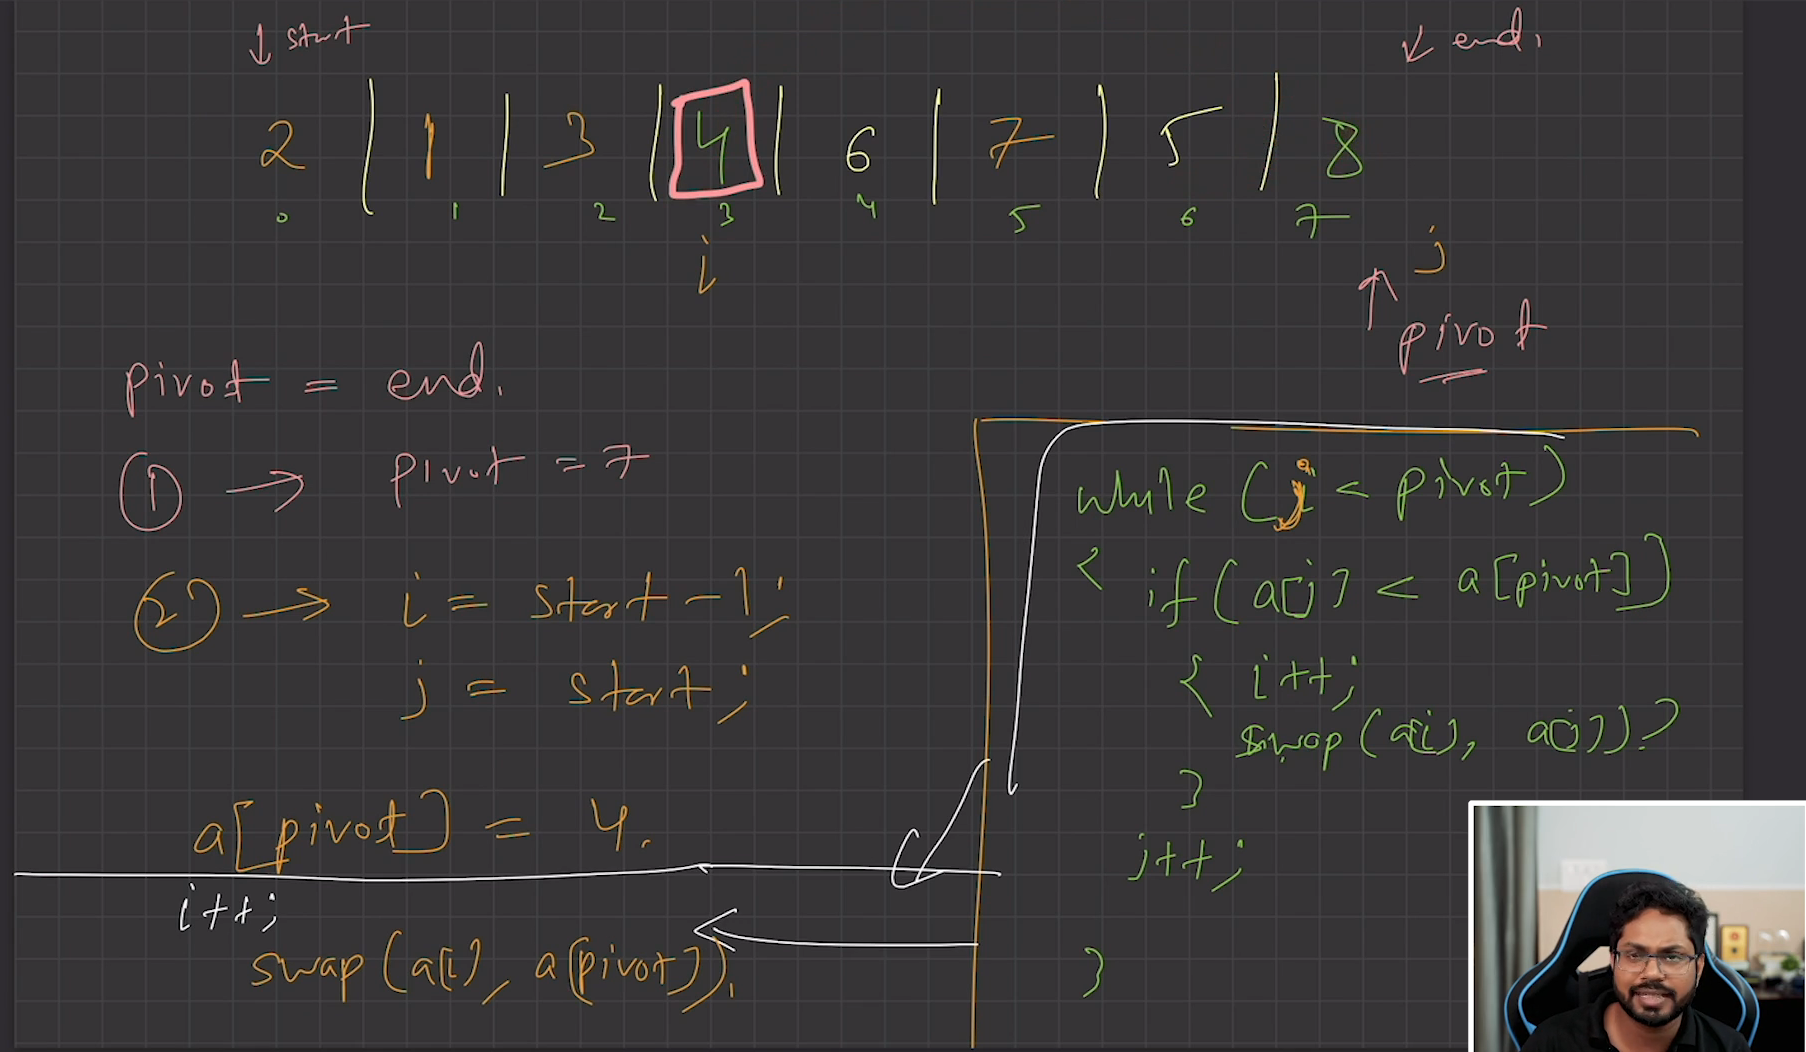 ↓ start
↙ end.
2 | 1 | 3 | 4 | 6 | 7 | 5 | 8
0 1 2 3 4 5 6 7
i
j
↑ pivot
pivot = end.
① → pivot = 7
② → i = start - 1;
j = start;
a[pivot] = 4.
i++;
swap(a[i], a[pivot]).
while (j < pivot)
{ if (a[j] < a[pivot])
{ i++;
swap(a[i], a[j]);
}
j++;
}